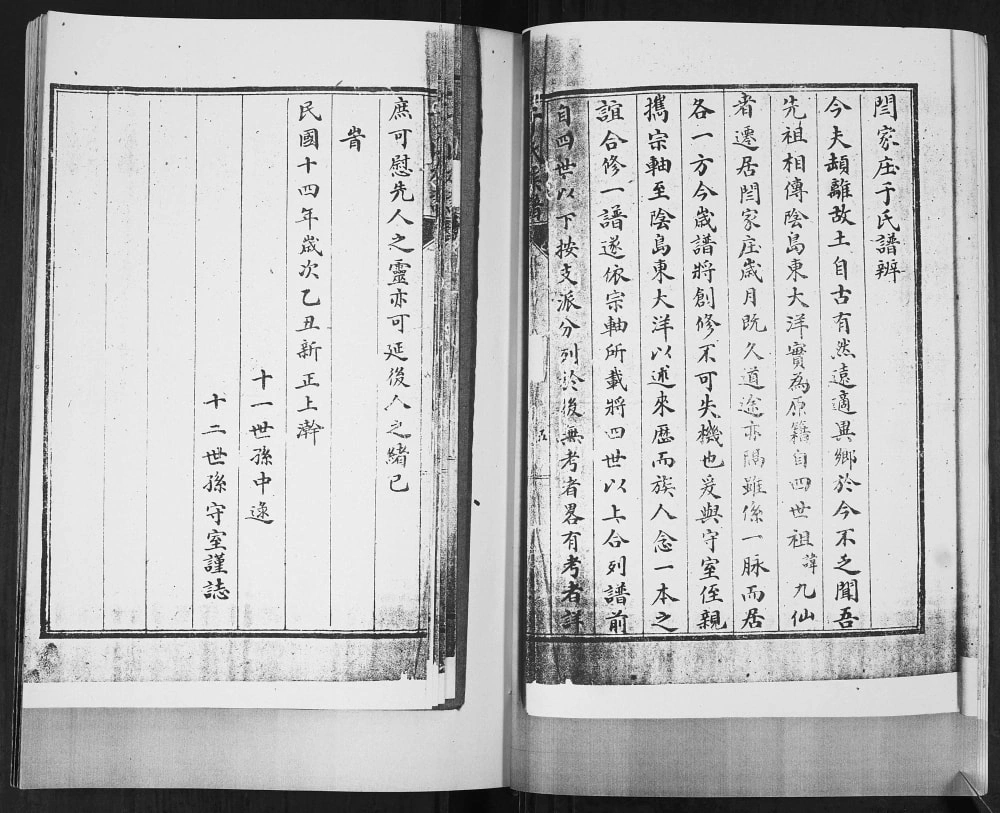 閆家庄于氏譜辨
今夫頡離故土自古有然遠適異鄉於今不乏聞吾
先祖相傳陰島東大洋實為原籍自四世祖諱九仙
者遷居閆家庄歲月既久道途亦隔雖係一脉而居
各一方今歲譜將創修不可失機也爰與守室侄親
攜宗軸至陰島東大洋以述來歷而族人念一本之
誼合修一譜遂依宗軸所載將四世以上合列譜前
自四世以下按支派分列於後無考者畧有考者詳
五
庶可慰先人之靈亦可延後人之緒已
旹
民國十四年歲次乙丑新正上澣
十一世孫中逵
十二世孫守室謹誌